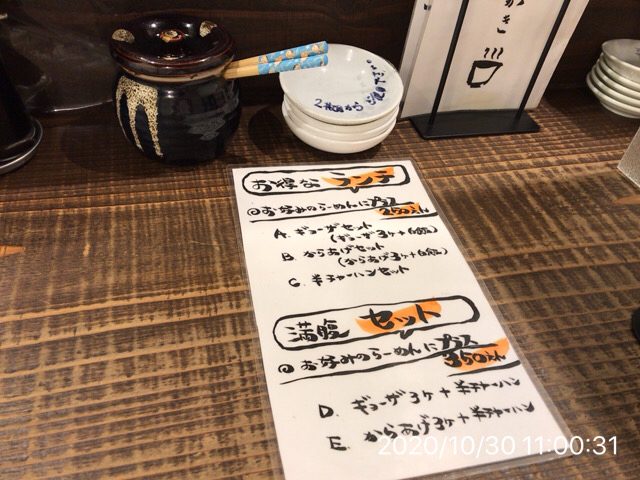 お得なランチ
お好みのらーめんにプラス
250えん
A. ギョーザセット
(ギョーザ3ケ+白飯)
B. からあげセット
(からあげ3ケ+白飯)
C. 半チャーハンセット
満腹 セット
お好みのらーめんにプラス
350えん
D. ギョーザ3ケ+半チャーハン
E. からあげ3ケ+半チャーハン
2020/10/30 11:00:31